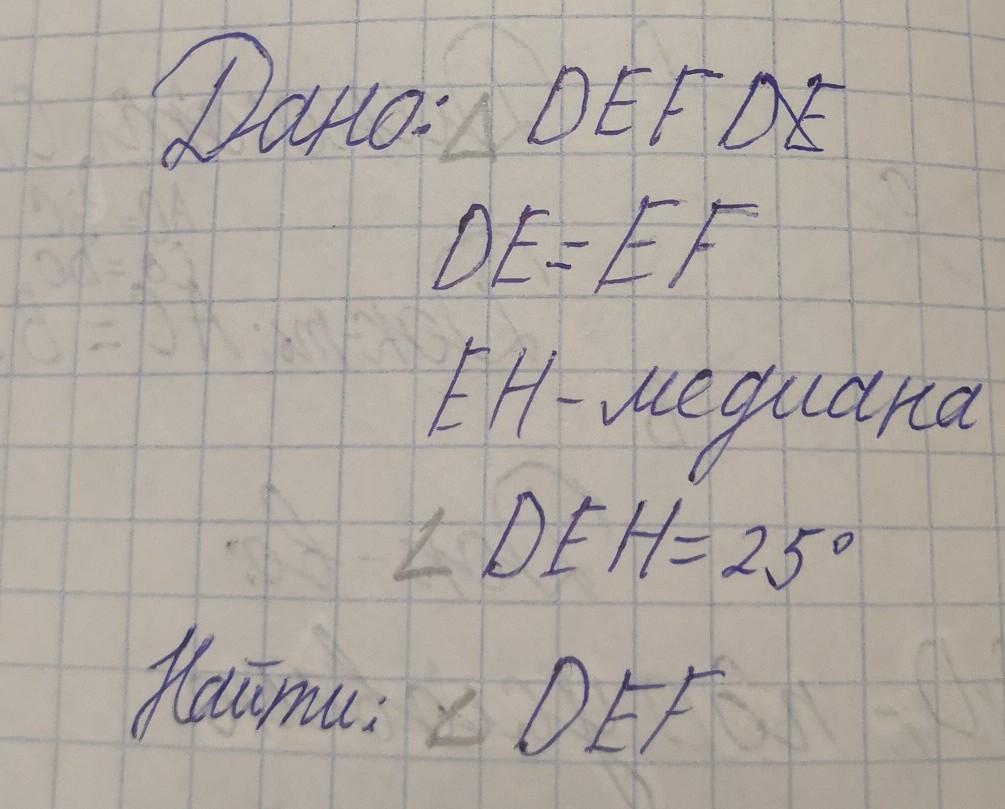 Дано: △ DEF DE
DE = EF
EH - медиана
∠ DEH = 25°
Найти: ∠ DEF